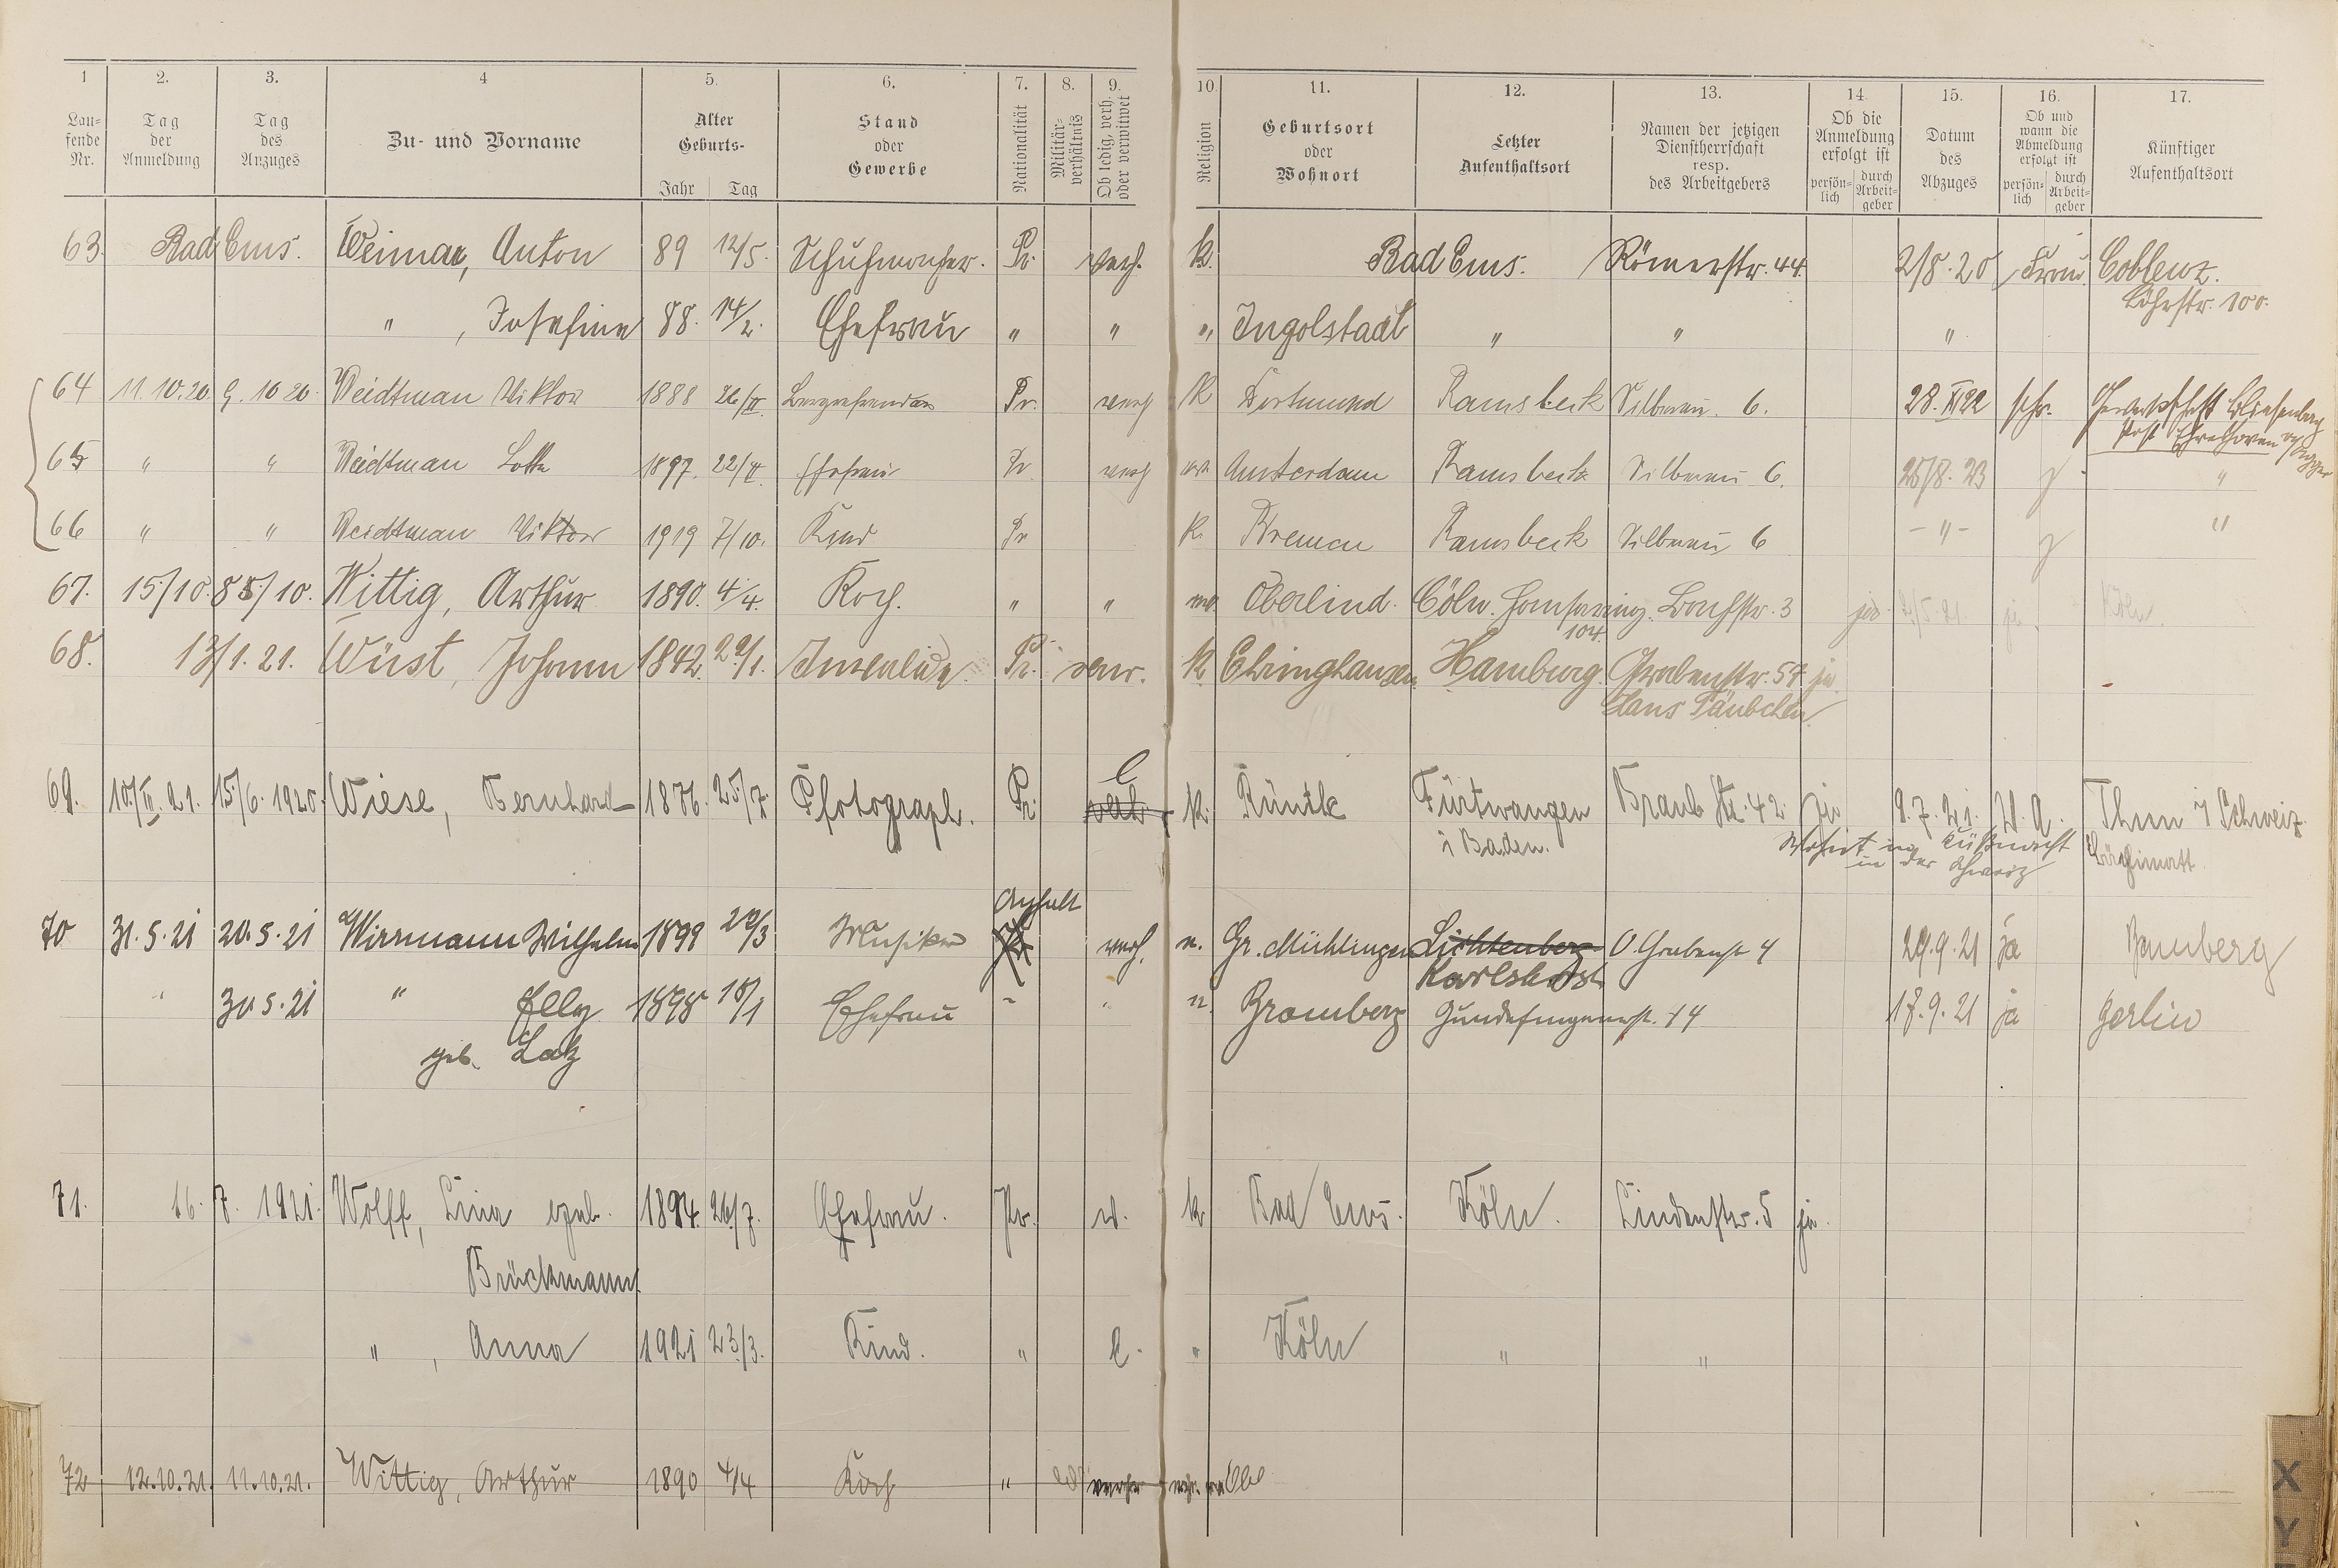 1 2. 3. 4 5. 6. 7. 8. 9. 10. 11. 12. 13. 14. 15. 16. 17.
Lau-
fende
Nr.
Tag
der
Anmeldung
Tag
des
Anzuges
Zu- und Vorname
Alter
Geburts-
Jahr Tag
Stand
oder
Gewerbe
Nationalität
Militär-
verhältnis
Ob ledig, verh.
oder verwitwet
Religion
Geburtsort
oder
Wohnort
Letzter
Aufenthaltsort
Namen der jetzigen
Dienstherrschaft
resp.
des Arbeitgebers
Ob die
Anmeldung
erfolgt ist
persön-
lich
durch
Arbeit-
geber
Datum
des
Abzuges
Ob und
wann die
Abmeldung
erfolgt ist
persön-
lich
durch
Arbeit-
geber
Künftiger
Aufenthaltsort
63. Bad Ems. Weimar, Anton 89 12/5. Schuhmacher. Pr. verh. k. Bad Ems. Römerstr. 44. 2/8. 20 Frau Coblenz.
Löhrstr. 100.
" , Josefine 88. 14/2. Ehefrau " " " Ingolstadt " " "
64 11.10.20. 9.10 20. Weidtman Viktor 1888 26/II. Pr. verh k Dortmund Ramsbeck Silberau. 6. 28. 22
65 " " Weidtman Lotte 1897. 22/ Ehefrau Pr verh Amsterdam Ramsbeck Silberau 6. 25/8. 23 "
66 " " Weidtman Viktor 1919 7/10. Kind Pr k. Bremen Ramsbeck Silberau 6 -"- "
67. 15/10. /10. Wittig, Arthur 1890. 4/4. Koch. " " Oberlind. Cöln. Bachstr. 3 ja
104.
68. 13/1. 21. Wüst, Johann 1842. 29/1. Invalide. Pr. verw. k. Ehringhausen Hamburg. Grabenstr. 57. ja.
Hans Täubchen
69. 10/ 21. 15/6. 1920. Wiese, Bernhard 1876. 25/7. Photograph. Pr. l k. Rünthe Furtwangen Braub Str. 42. ja 9.7.21. W.A. Thun i/Schweiz.
i Baden. Wohnt in Küßnacht
in der Schweiz
Anhalt
70 31.5.21 20.5.21 Wirrmann Wilhelm 1899 29/3 Musiker verh. Gr. Mühlingen Lichtenberg O. Grabenstr 4 29.9.21 ja Bamberg
Karlshorst
" 30.5.21 " Elly 1898 18/1 Ehefrau " " Bromberg 14 17.9.21 ja Berlin
geb. Latz
71. 16. 7. 1921. Wolff, Lina geb. 1894. 26/7. Ehefrau. Pr. k. Bad Ems. Köln. Lindenstr. 5 ja.
Brückmann
" , Anna 1921 23/3. Kind. " l. " Köln " "
72 12.10.21. 11.10.21. Wittig, Arthur 1890 4/4 Koch "
X
Y